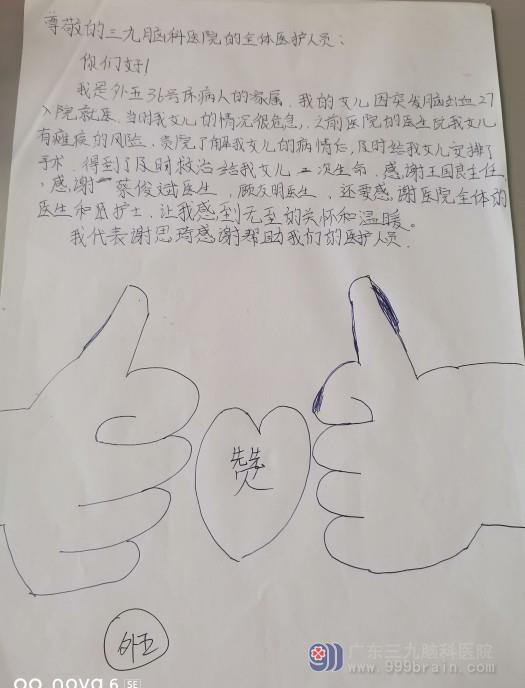 尊敬的三九脑科医院的全体医护人员：
你们好！
我是外五36号床病人的家属，我的女儿因突发脑出血27
入院就医，当时我女儿的情况很危急，之前医院的医生说我女儿
有瘫痪的风险，贵院了解我女儿的病情后，及时给我女儿安排了
手术，得到了及时救治给我女儿二次生命，感谢王国良主任
，感谢蔡俊斌医生，顾友明医生，还要感谢医院全体的
医生和护士，让我感到无至的关怀和温暖。
我代表谢思琦感谢帮助我们的医护人员．
赞
外五
nova 6 SE
广东三九脑科医院
www.999brain.com